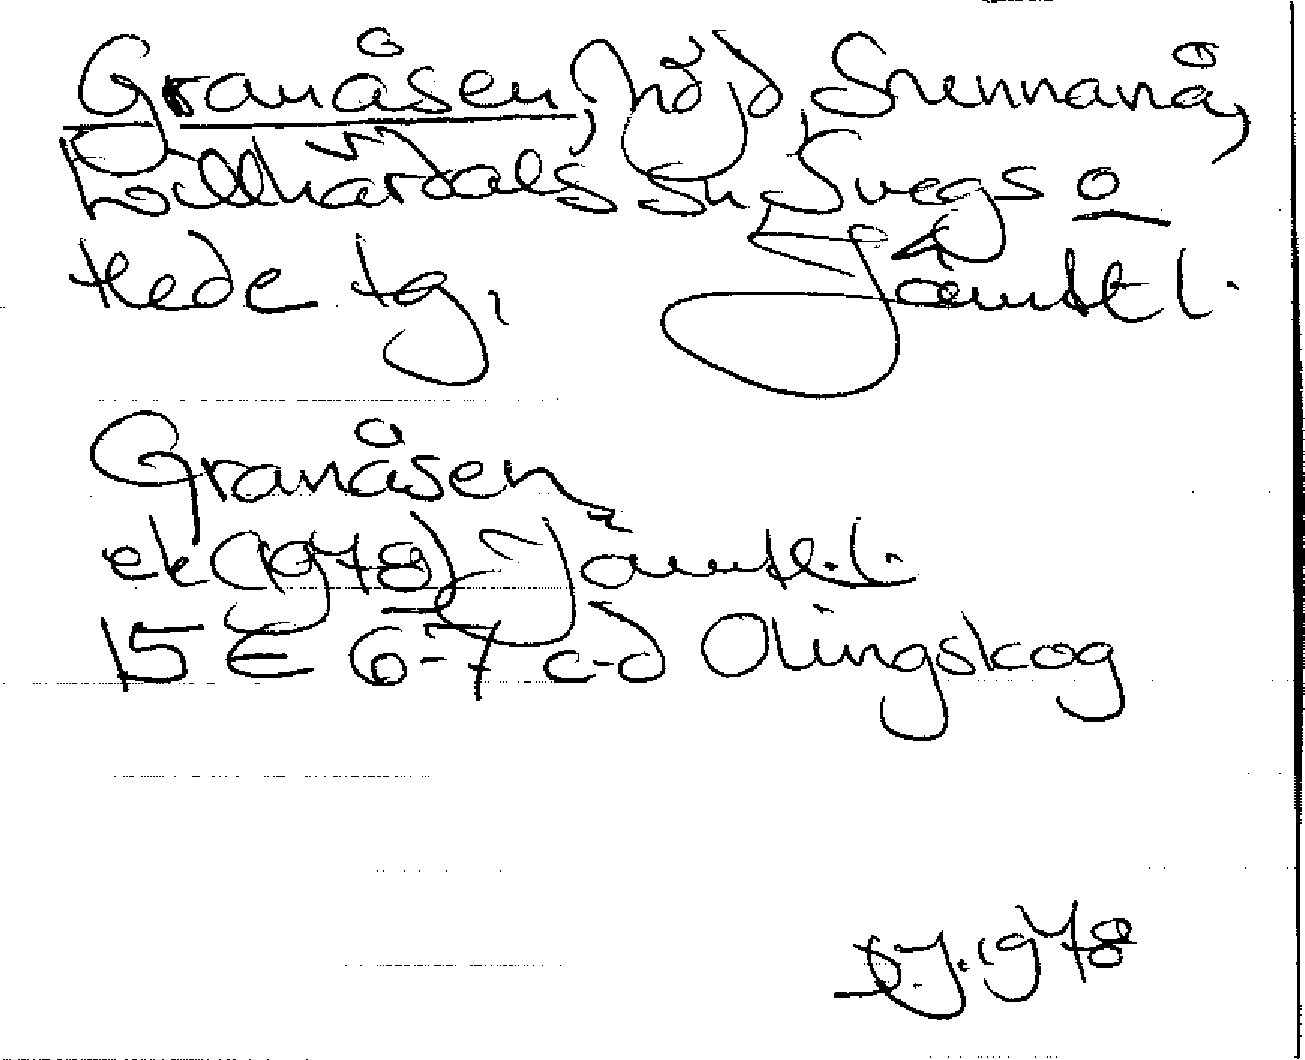 Granåsen, höjd Svennanå,
Lillhärdals sn Svegs o
Hede tg, Jämtl.
Granåsen,
ek (1978) Jämtl.l.
15 E 6-7 c-d Olingskog
J.1978